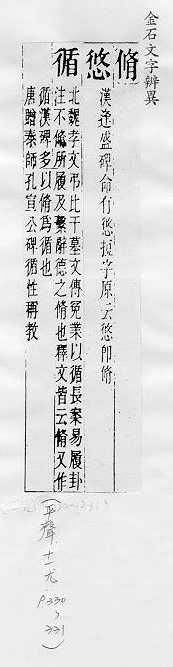 金石文字辨異
脩
悠
漢逢盛碑命有悠 字原云悠即脩
循
北魏孝文弔比干墓文傳冕業以循長案易履卦
注不脩所履及繫辭德之脩也釋文皆云脩又作
循漢碑多以脩為循也
唐贈泰師孔宣公碑循性稱教
(平聲十一尤 P330~331)